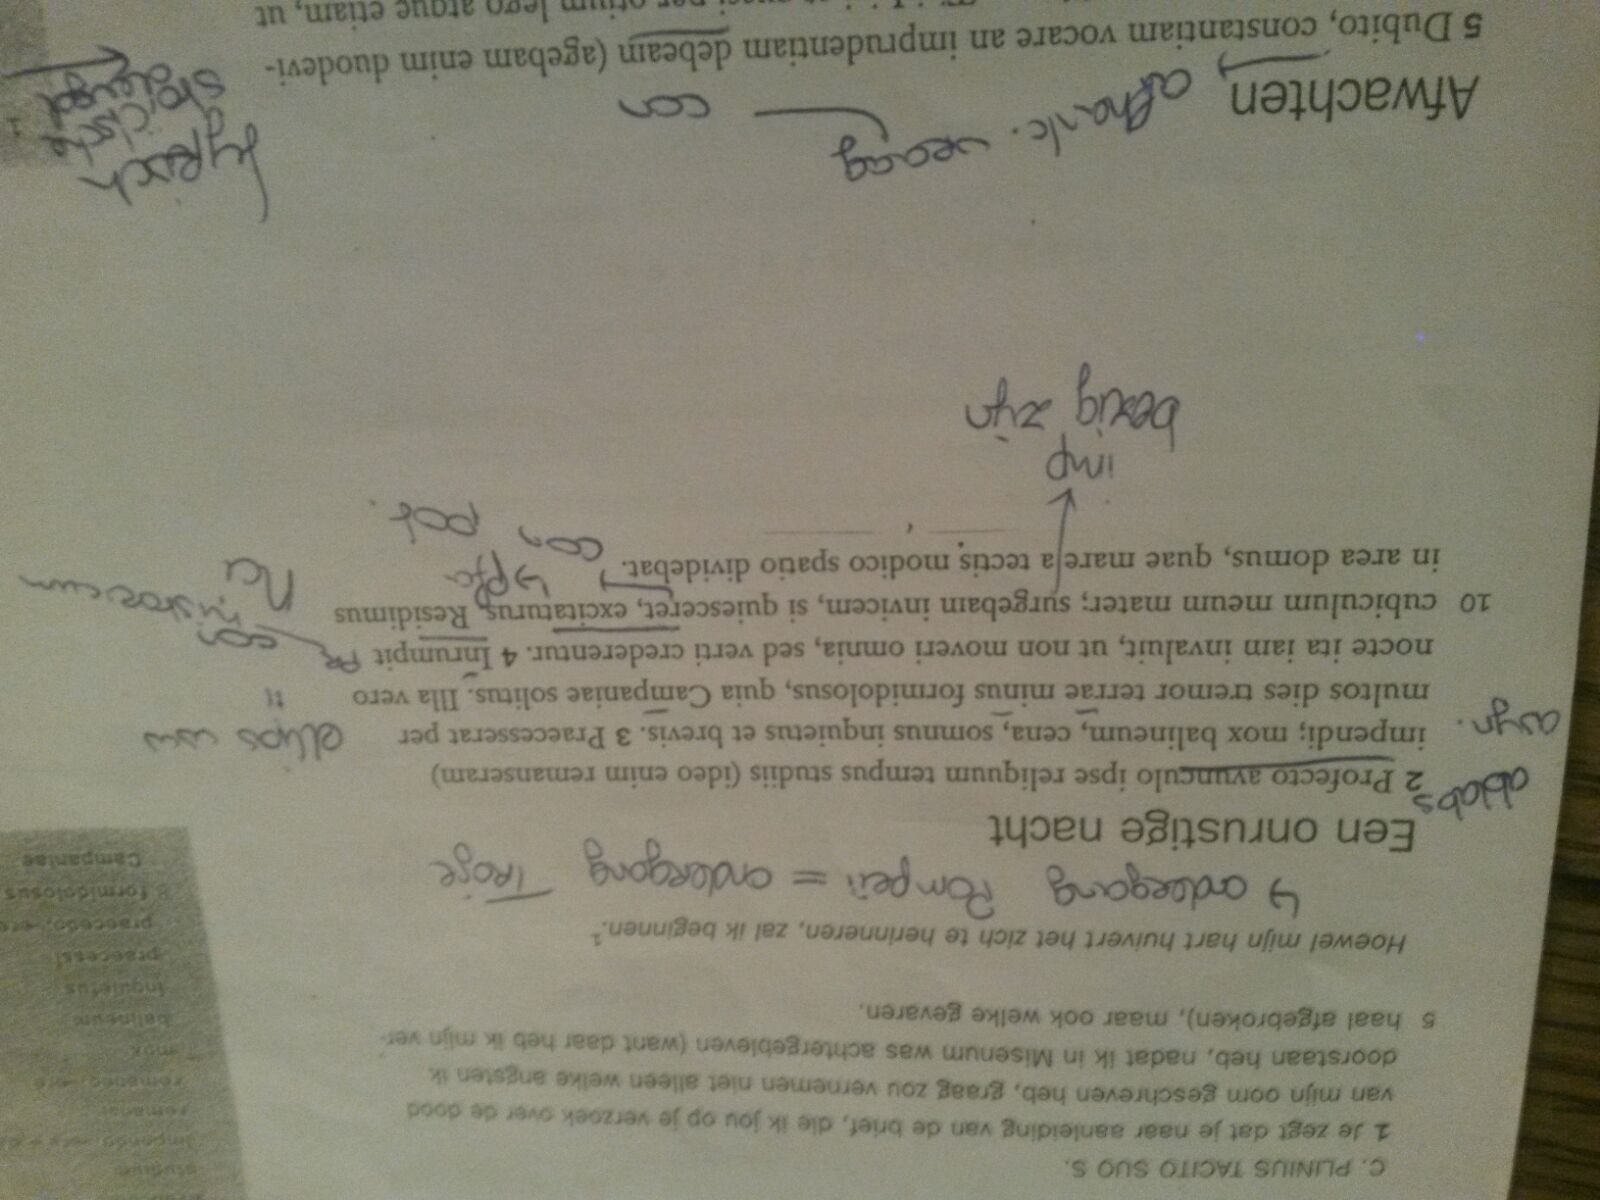 C. PLINIUS TACITO SUO S.
1 Je zegt dat je naar aanleiding van de brief, die ik jou op je verzoek over de dood
van mijn oom geschreven heb, graag zou vernemen niet alleen welke angsten ik
doorstaan heb, nadat ik in Misenum was achtergebleven (want daar heb ik mijn ver-
5 haal afgebroken), maar ook welke gevaren.
Hoewel mijn hart huivert het zich te herinneren, zal ik beginnen.¹
↳ ondergang Pompeii = ondergang Troje
Een onrustige nacht
ablabs
2 Profecto avunculo ipse reliquum tempus studiis (ideo enim remanseram)
asyn. impendi; mox balineum, cena, somnus inquietus et brevis. 3 Praecesserat per
ellips
multos dies tremor terrae minus formidolosus, quia Campaniae solitus. Illa vero
nocte ita iam invaluit, ut non moveri omnia, sed verti crederentur. 4 Inrumpit
pr
con
10 cubiculum meum mater; surgebam invicem, si quiesceret, excitaturus. Residimus
↳ pfa
con
in area domus, quae mare a tectis modico spatio dividebat.
imp
bezig zijn
Afwachten
afhank. vraag
con
5 Dubito, constantiam vocare an imprudentiam debeam (agebam enim duodevi-
studium
impendo, -ere
remansi
remaneo, -ere
mox
balineum
inquietus
praecessi
praecedo, -ere
8 formidolosus
Campaniae